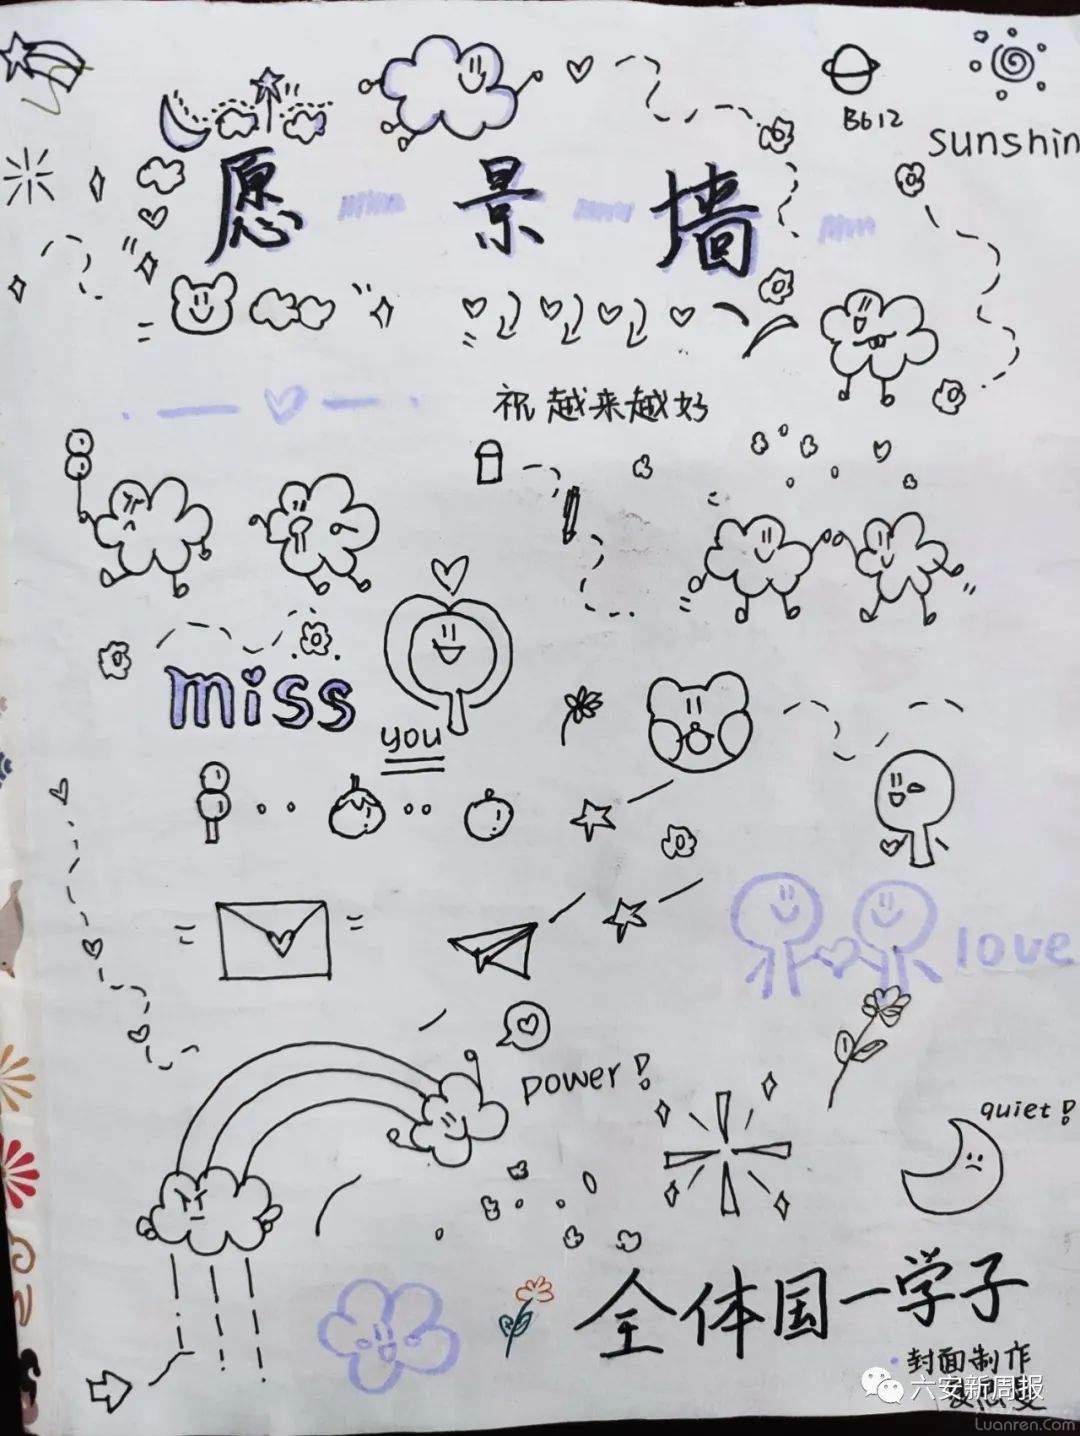 B612
sunshin
愿景墙
祝越来越好
miss
you
love
power!
quiet!
全体国一学子
封面制作
六安新周报
Luanren.Com